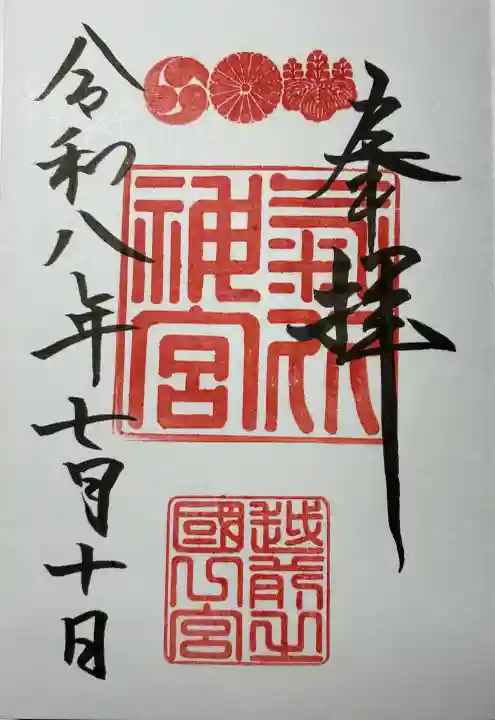 奉拝
氣比
神宮
越前之
國一宮
令和八年七月十日